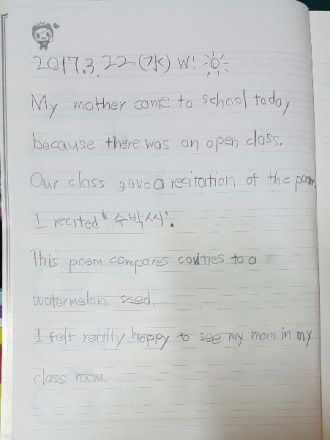 2017.3.22(水) W!
My mother came to school today
because there was an open class.
Our class gave a recitation of the poem
I recited "수박씨".
This poem compares cavities to a
watermelon seed.
I felt really happy to see my mom in my
class room.